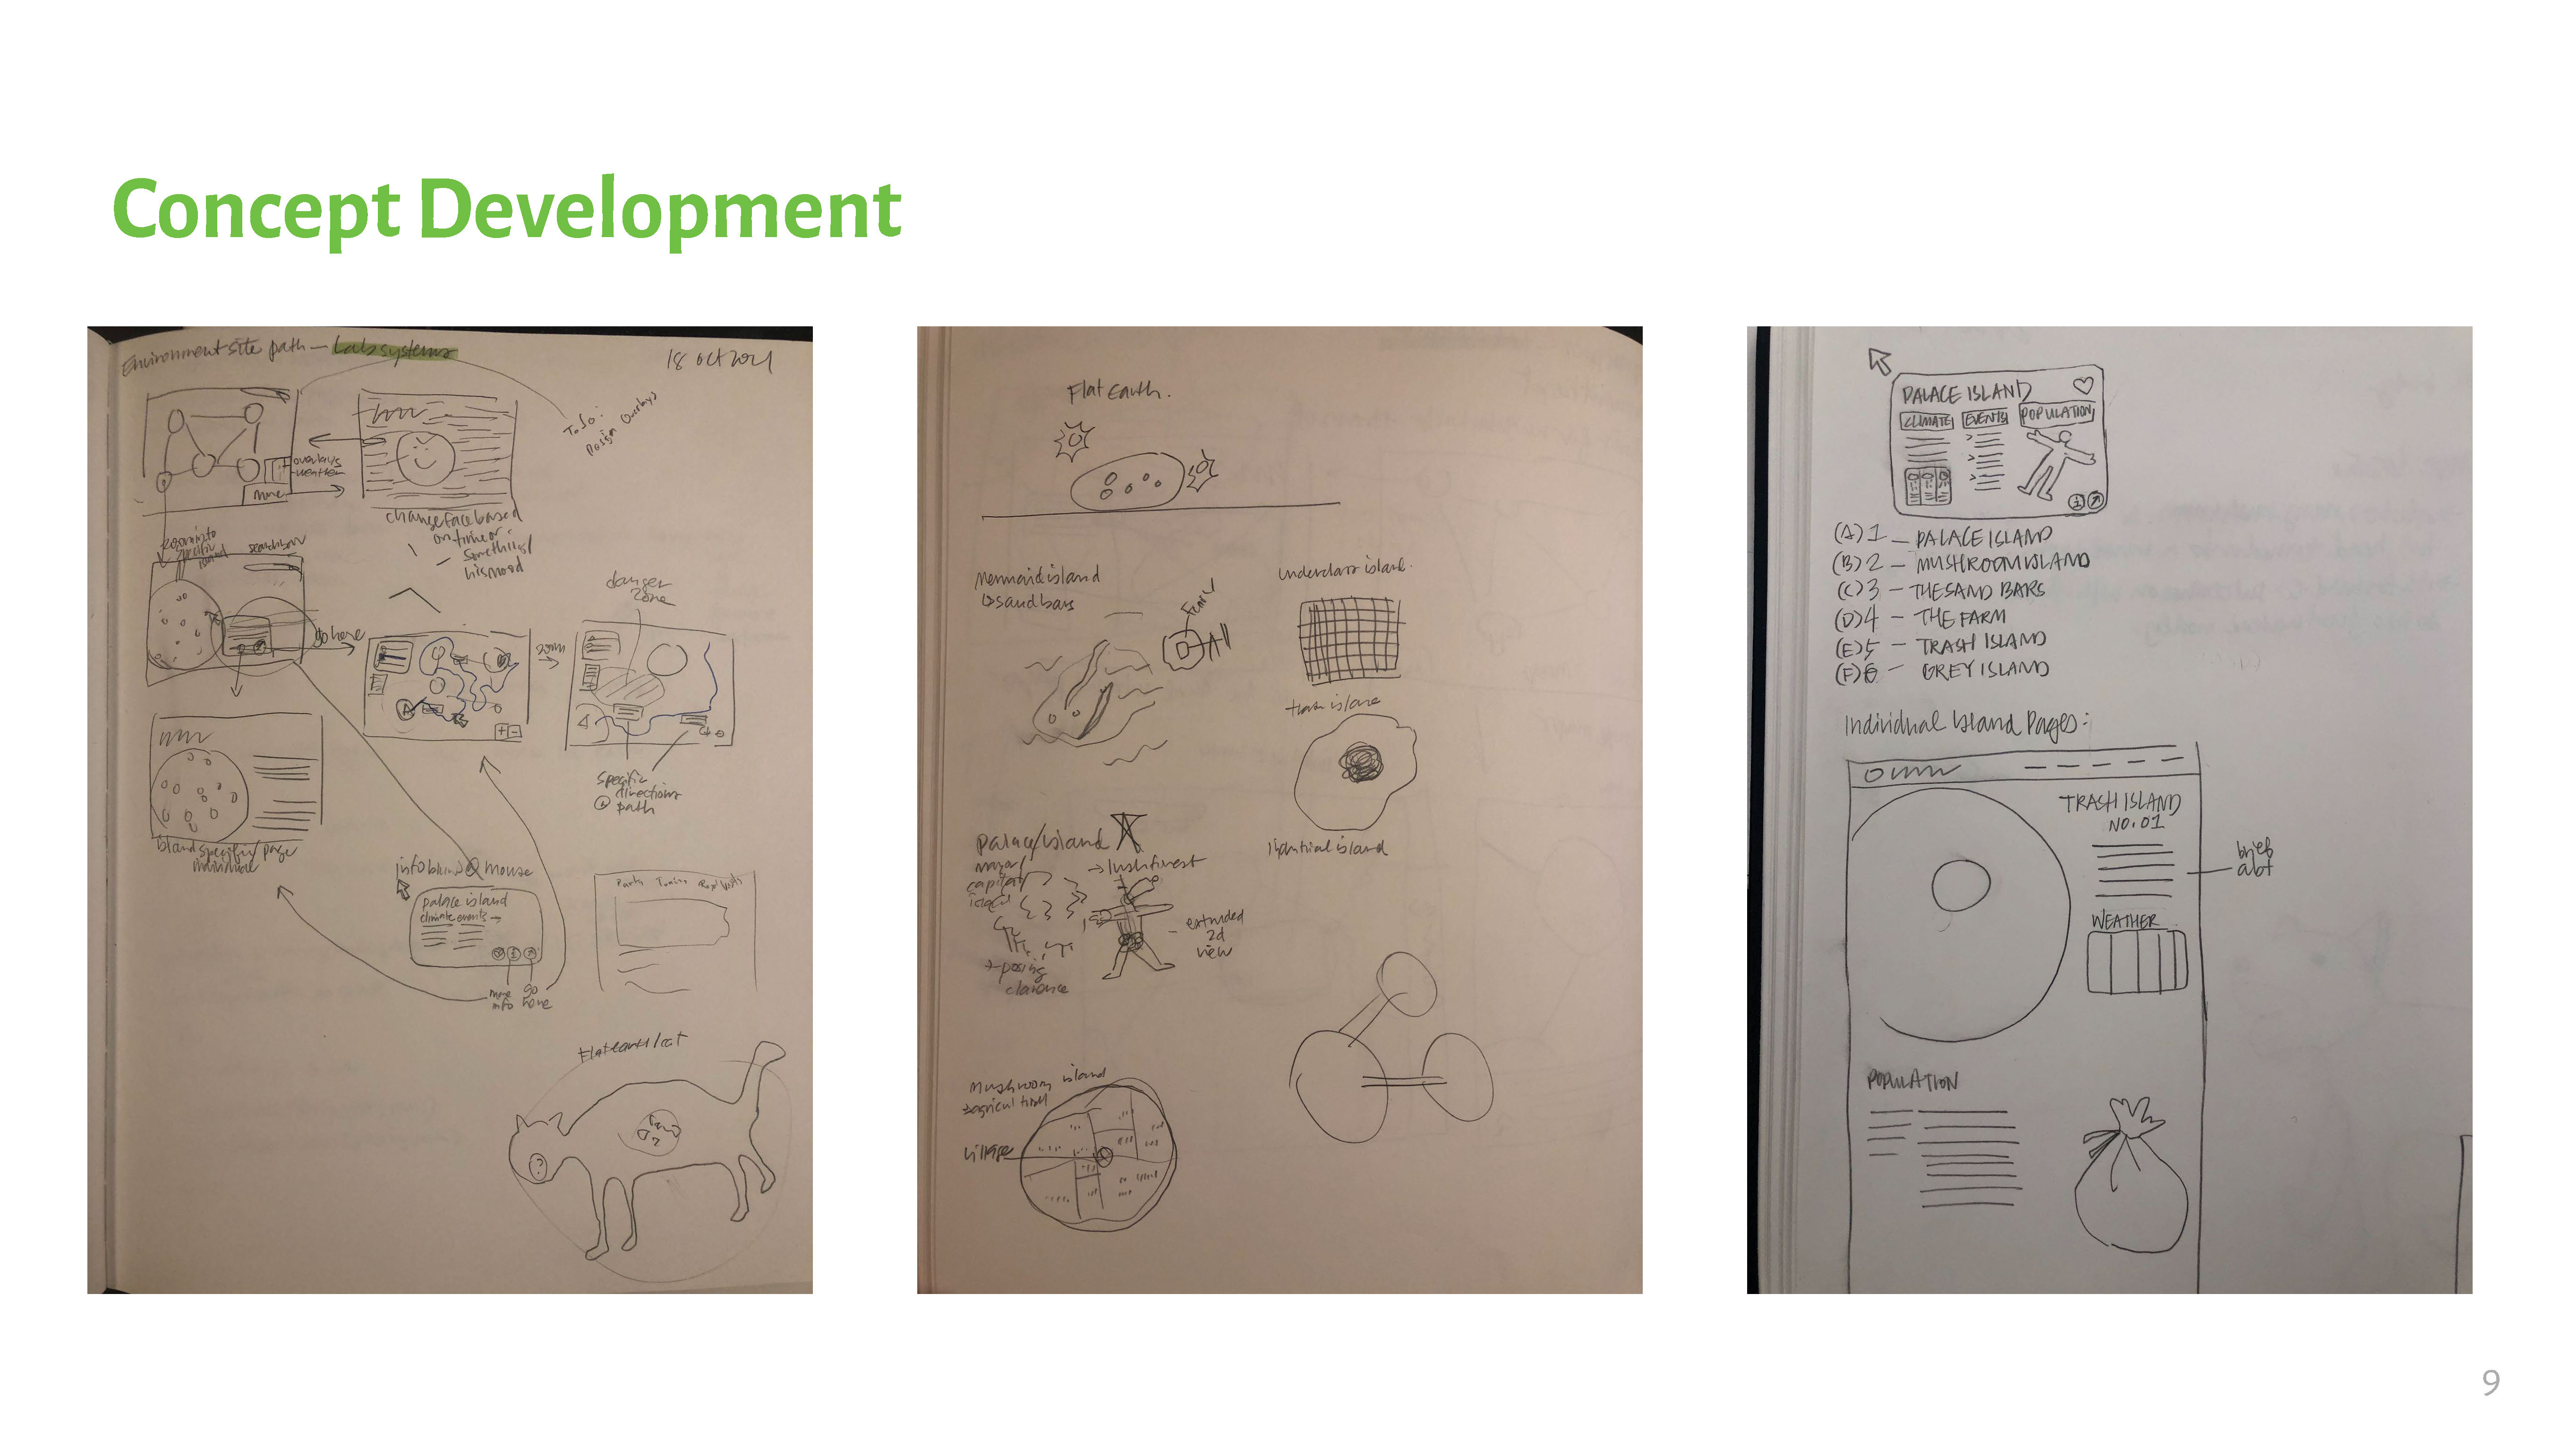 Concept Development
Environment site path — Lab systems
18 Oct 2021
To do:
Design Overlays
overlays
-weather
more
change face based
on time or
something/
his mood
zoom into
specific
island
search bar
go here
danger
zone
zoom
specific
directions
path
island specific page
info blurb @ mouse
palace island
climate events →
more
info
go
here
Flat earth/cat
Flat Earth.
Mermaid island
sand bars
underclass island.
trash island
industrial island
palace/island
major
capital
island
→ lush forest
extruded
2d
view
→ posing
clarence
Mushroom island
village
PALACE ISLAND
CLIMATE EVENTS POPULATION
(A) 1 — PALACE ISLAND
(B) 2 — MUSHROOM ISLAND
(C) 3 — THE SAND BARS
(D) 4 — THE FARM
(E) 5 — TRASH ISLAND
(F) 6 — GREY ISLAND
Individual Island Pages:
TRASH ISLAND
NO. 01
brief
abt
WEATHER
POPULATION
9